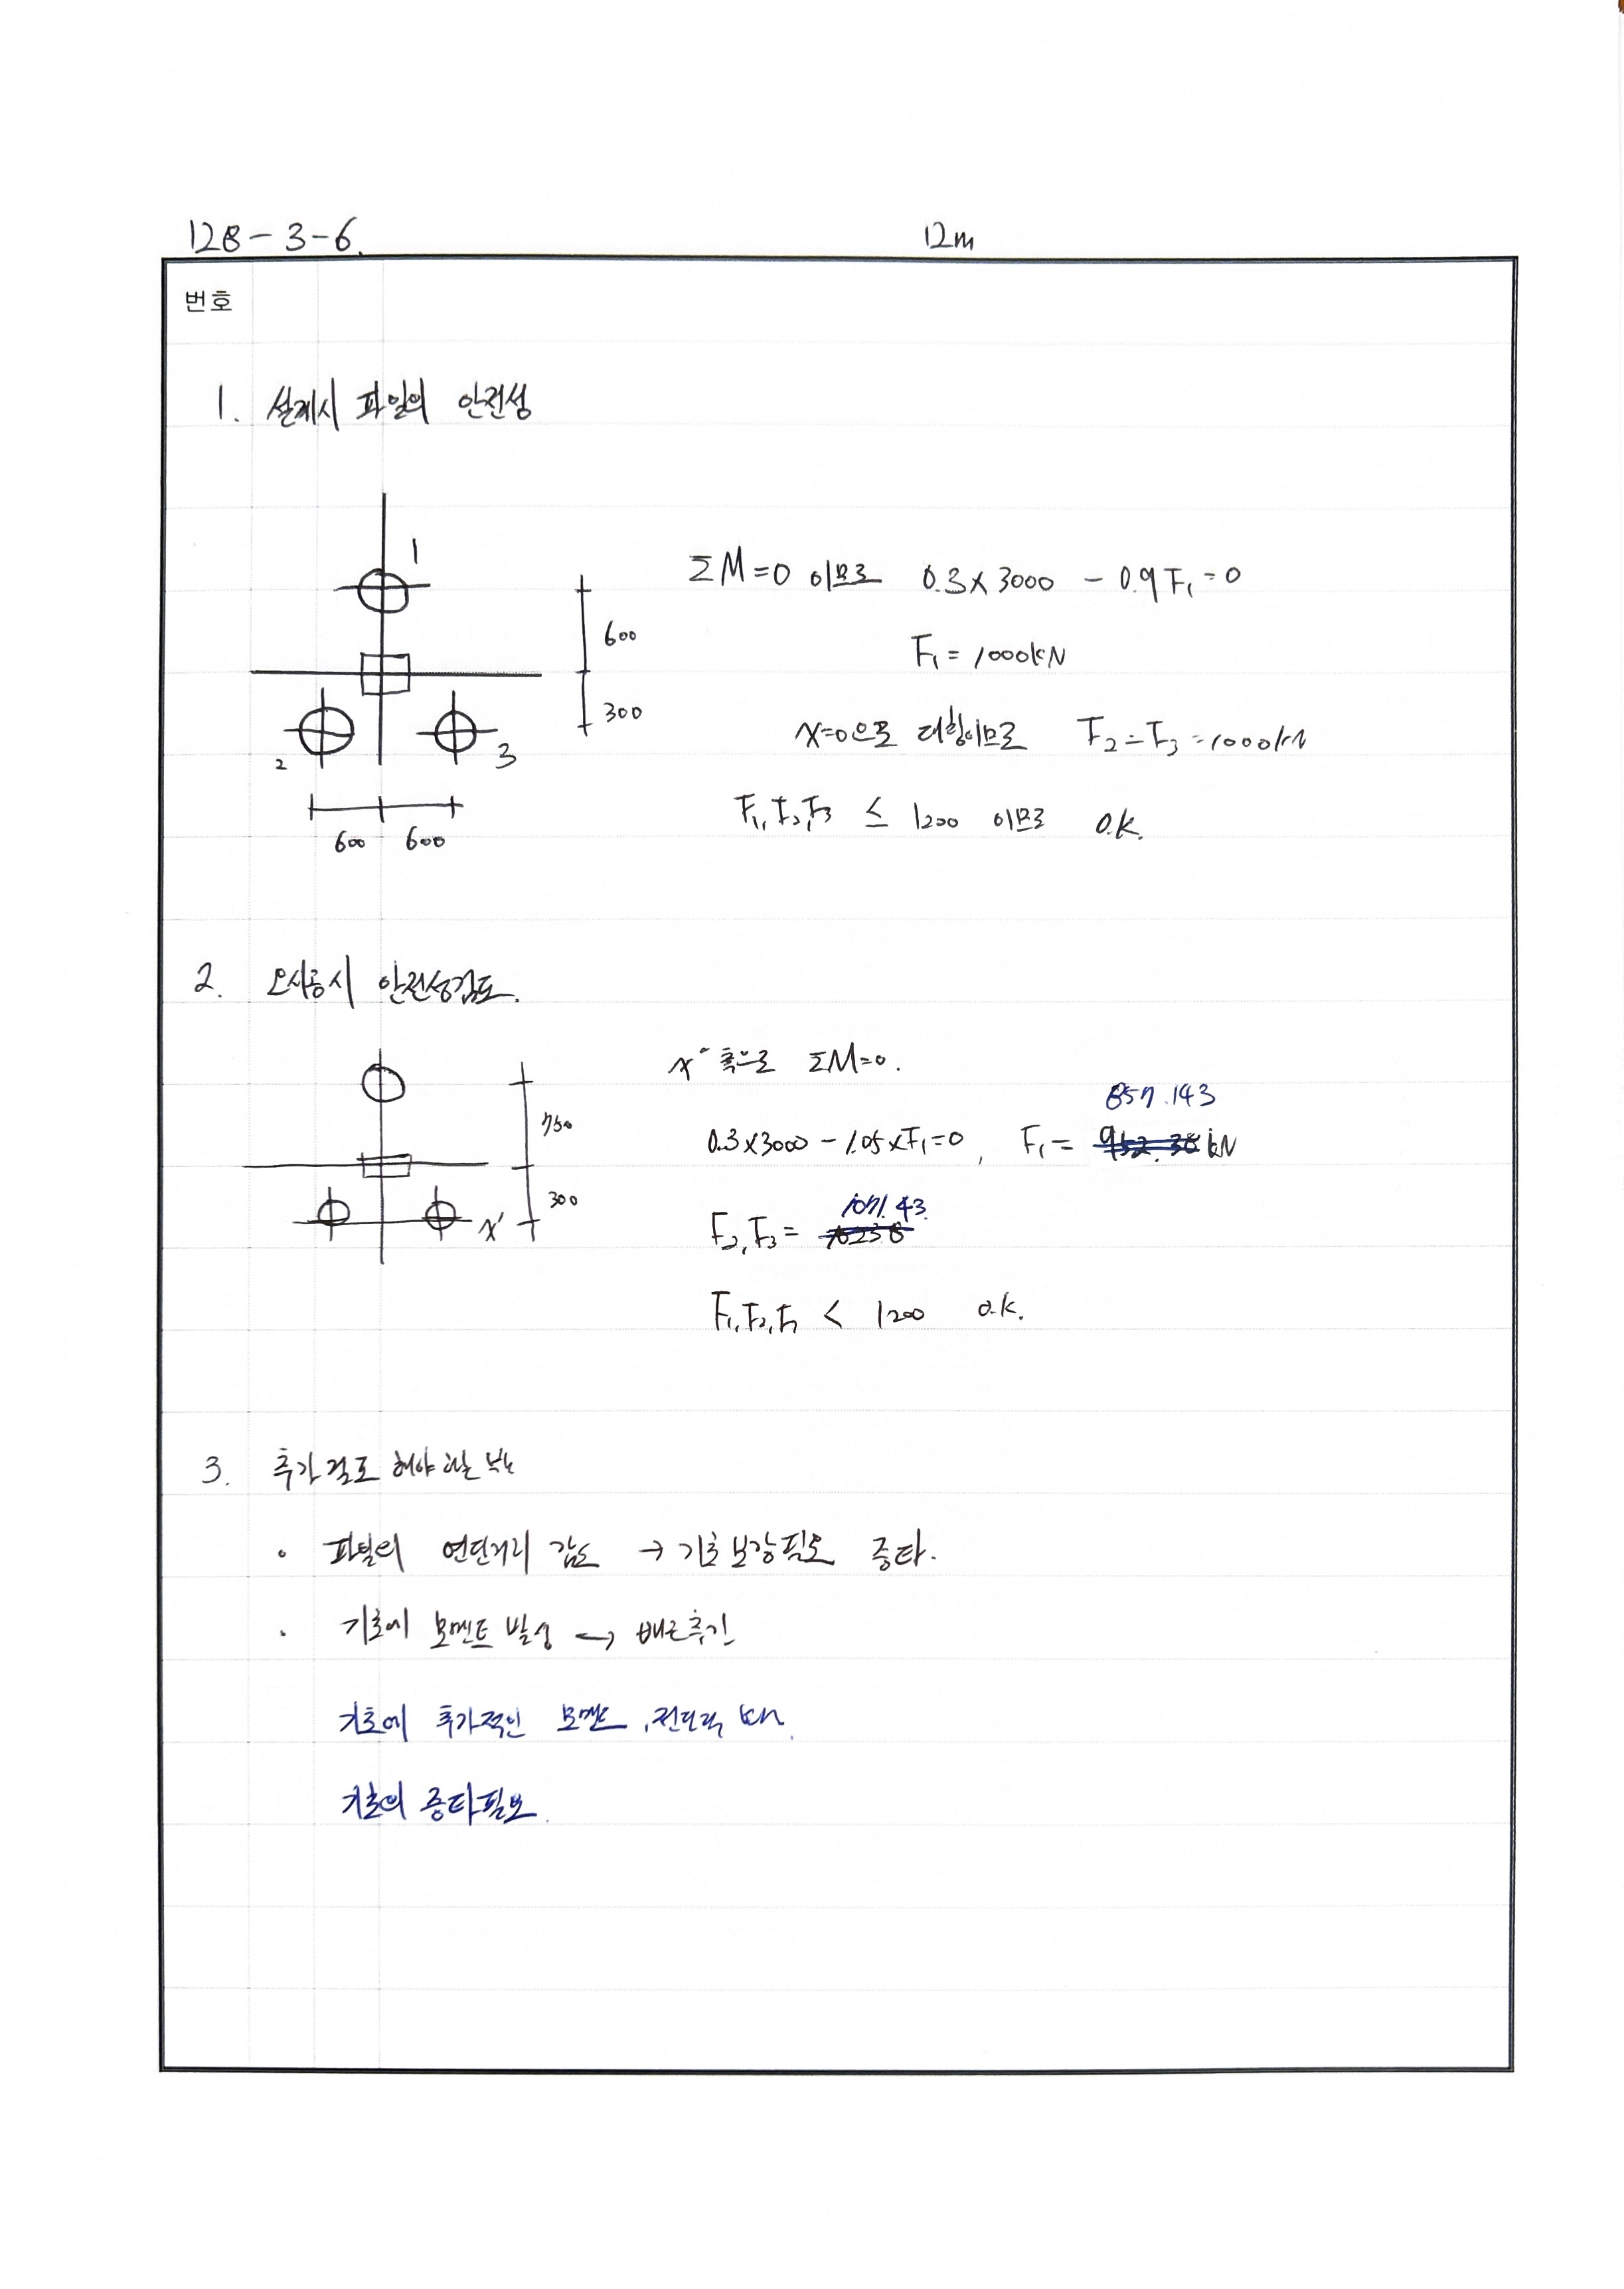 128-3-6.
12m
번호
1. 설계시 파일의 안전성
1
600
300
2
3
600 600
ΣM=0 이므로 0.3×3000 - 0.9F₁=0
F₁=1000kN
x=0으로 대칭이므로 F₂=F₃=1000kN
F₁,F₂,F₃ ≤ 1200 이므로 O.K.
2. 오시공시 안전성검토.
750
300
x'
x' 축으로 ΣM=0.
857.143
0.3×3000-1.05×F₁=0, F₁= 952.38 kN
1071.43.
F₂,F₃=
F₁,F₂,F₃ < 1200 O.K.
3. 추가검토 해야 하는
파일의 연단거리 검토 → 기초보강필요 증타.
기초에 모멘트 발생 → 배근추가
기초에 추가적인 모멘트, 전단력
기초의 증타필요.